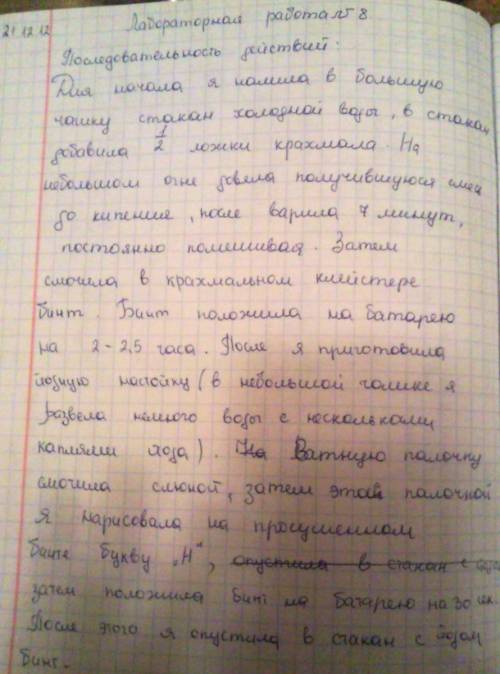 21.12.12 Лабораторная работа №8
Последовательность действий:
Для начала я налила в большую
чашку стакан холодной воды, в стакан
добавила 1/2 ложки крахмала. На
небольшом огне довела получившуюся смесь
до кипения, после варила 7 минут,
постоянно помешивая. Затем
смочила в крахмальном клейстере
бинт. Бинт положила на батарею
на 2-2,5 часа. После я приготовила
йодную настойку (в небольшой
я
развела немного воды с несколькими
каплями йода). На Ватную палочку
смочила слюной, затем этой палочкой
я нарисовала на просушенном
бинте букву „Н", опустила в стакан с йодом
затем положила бинт на батарею на 30 сек.
После этого я опустила в стакан с йодом
бинт.